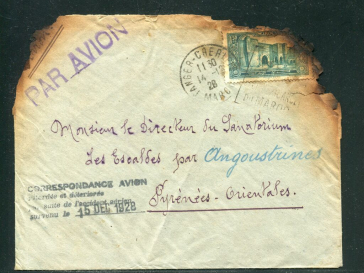 PAR AVION
TANGER-CHERIFIEN
11 30
14 -12
28
MAROC
MAROC
Monsieur le Directeur du Sanatorium
Les Escaldes par Angoustrines
Pyrénées-Orientales.
CORRESPONDANCE AVION
retardée et détériorée
par suite de l'accident aérien
survenu le 15 DEC 1928